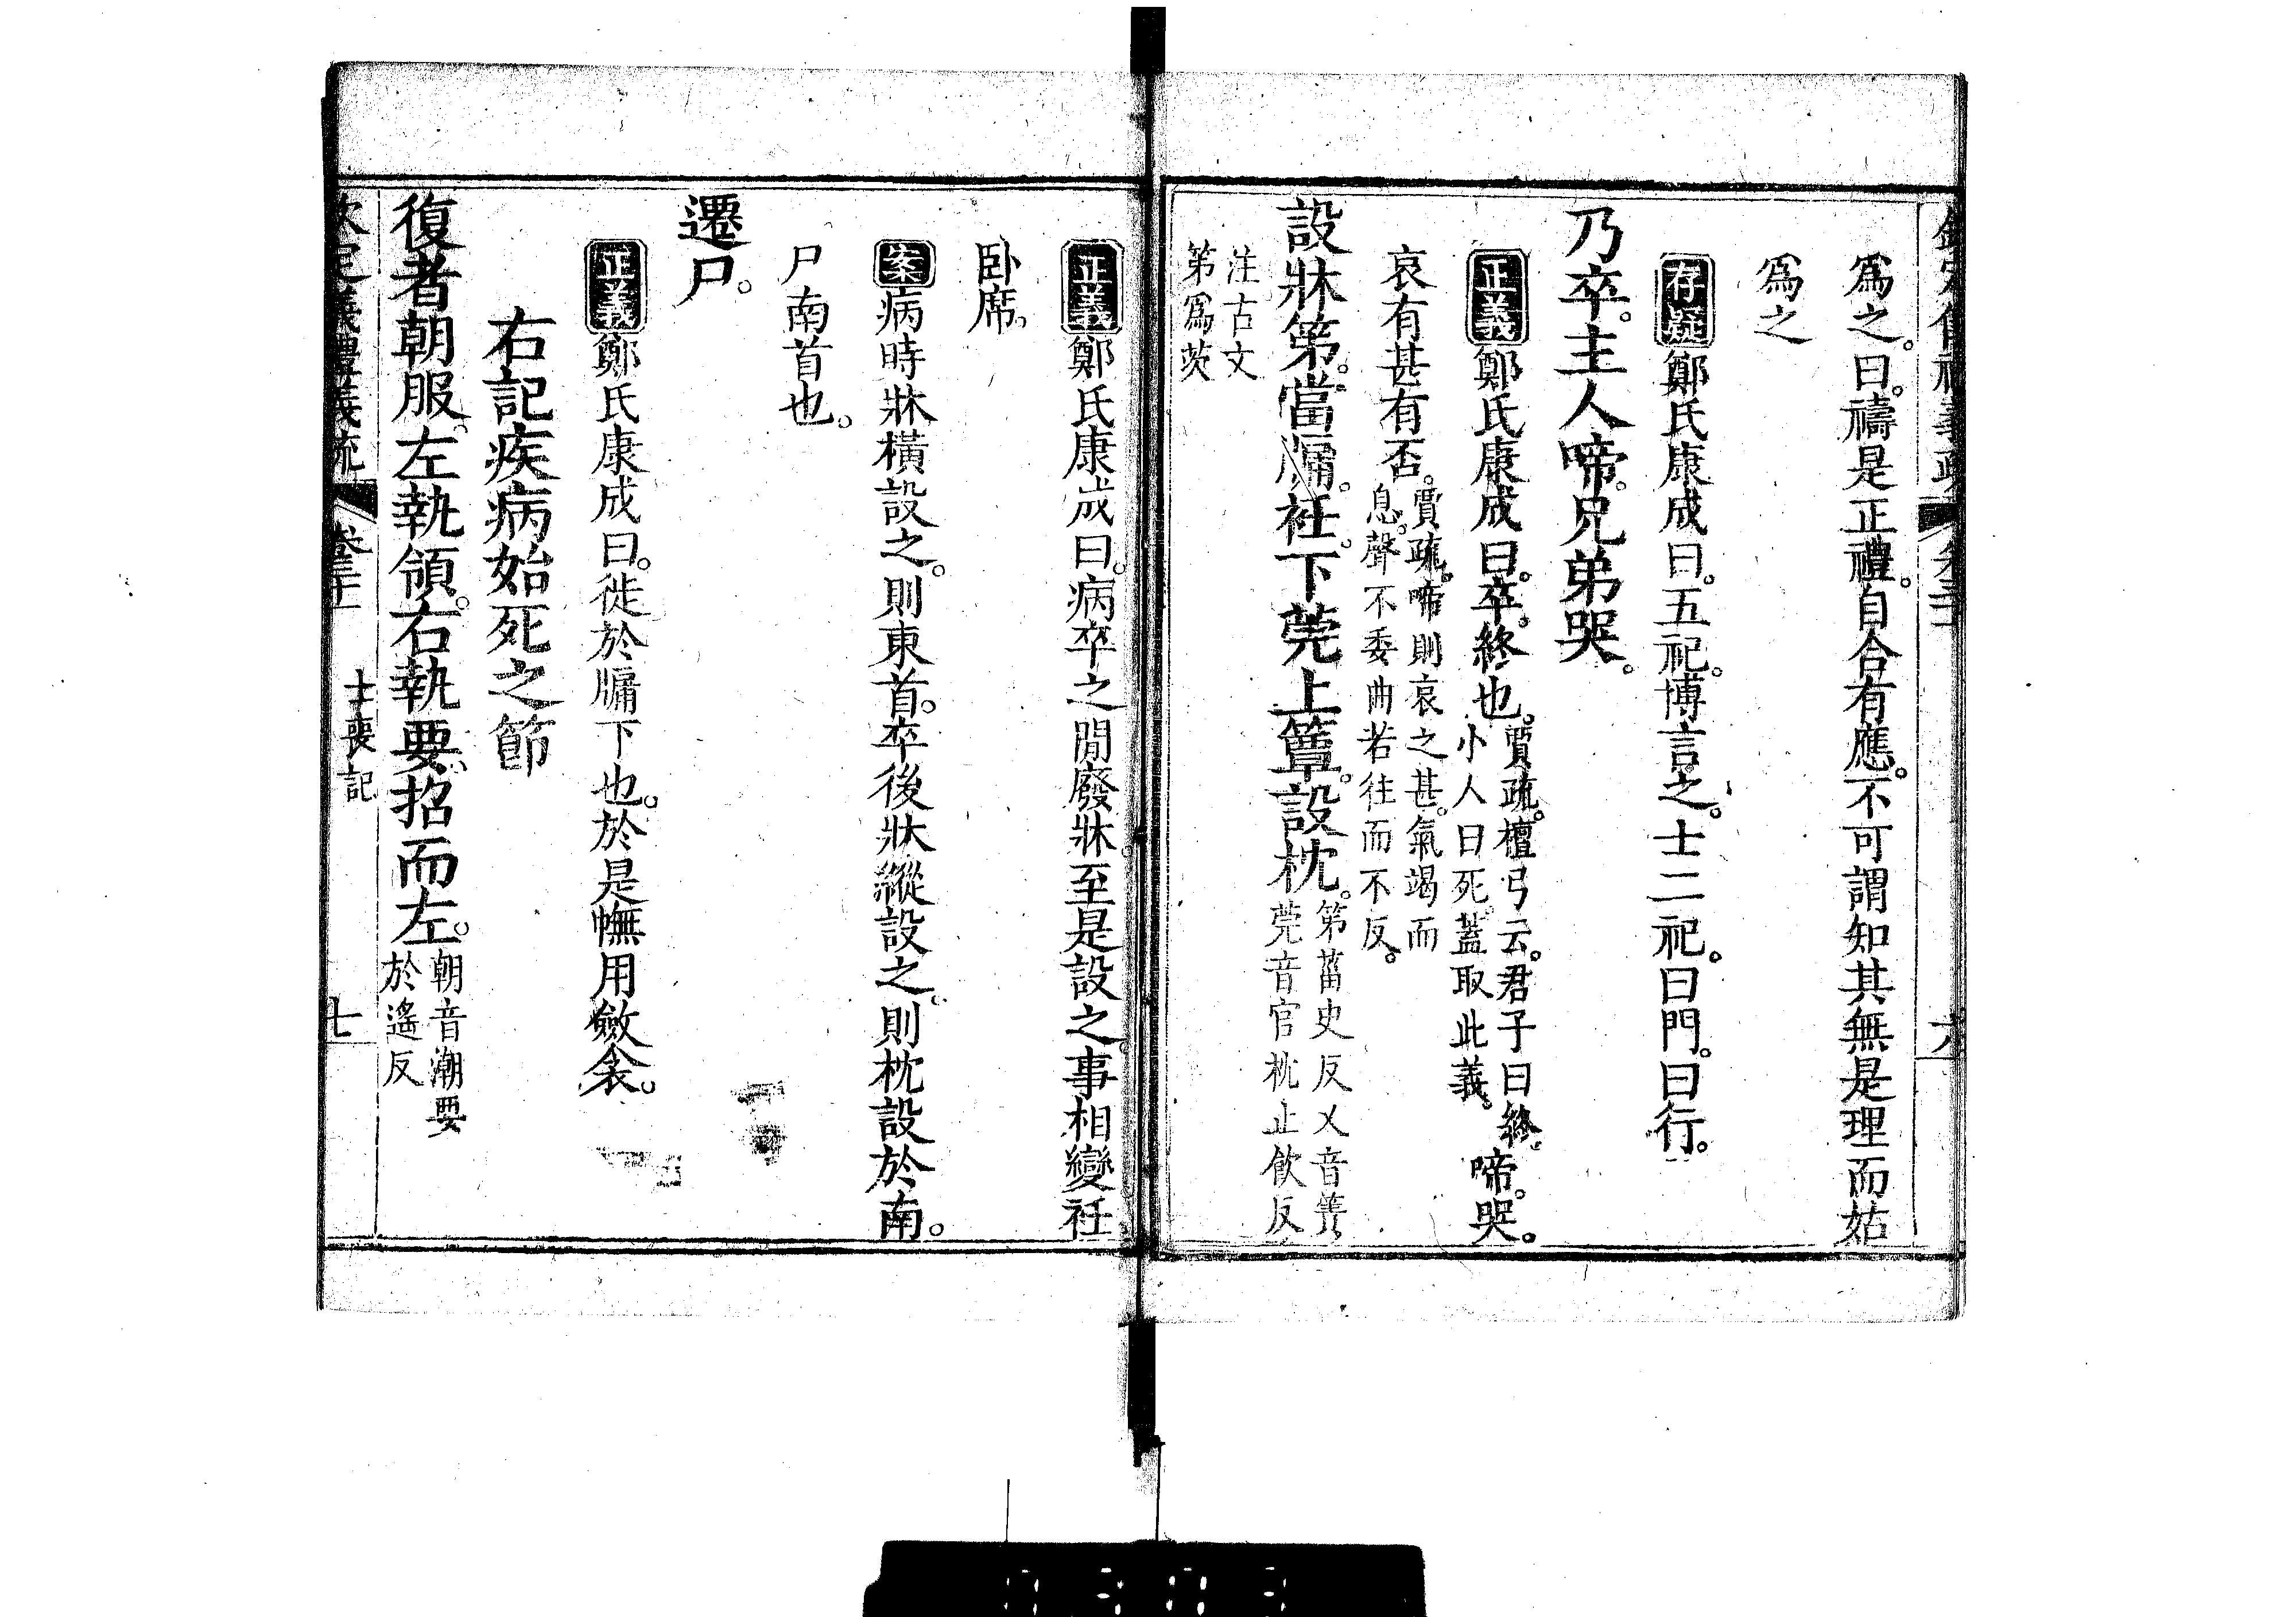 爲之。曰。禱是正禮。自合有應。不可謂知其無是理而姑
爲之
存疑鄭氏康成曰。五祀。博言之。士二祀。曰門。曰行。
乃卒。主人啼。兄弟哭。
正義鄭氏康成曰。卒。終也。賈疏。檀弓云。君子曰終。
小人曰死。蓋取此義。啼。哭。
哀有甚有否。賈疏。啼則哀之甚。氣竭而
息。聲不委曲若往而不反。
設牀第。當牖。衽。下莞上簟。設枕。第菑史反又音箦
莞音官枕止飲反
注古文
第爲茨
正義鄭氏康成曰。病卒之閒廢牀。至是設之。事相變衽
卧席。
案病時牀橫設之。則東首。卒後牀縱設之。則枕設於南。
尸南首也。
遷尸。
正義鄭氏康成曰。徙於牖下也。於是幠用斂衾。
右記疾病始死之節
復者朝服。左執領。右執要。招而左。朝音潮要
於遙反
欽定儀禮義疏 卷三十一 士喪記 七